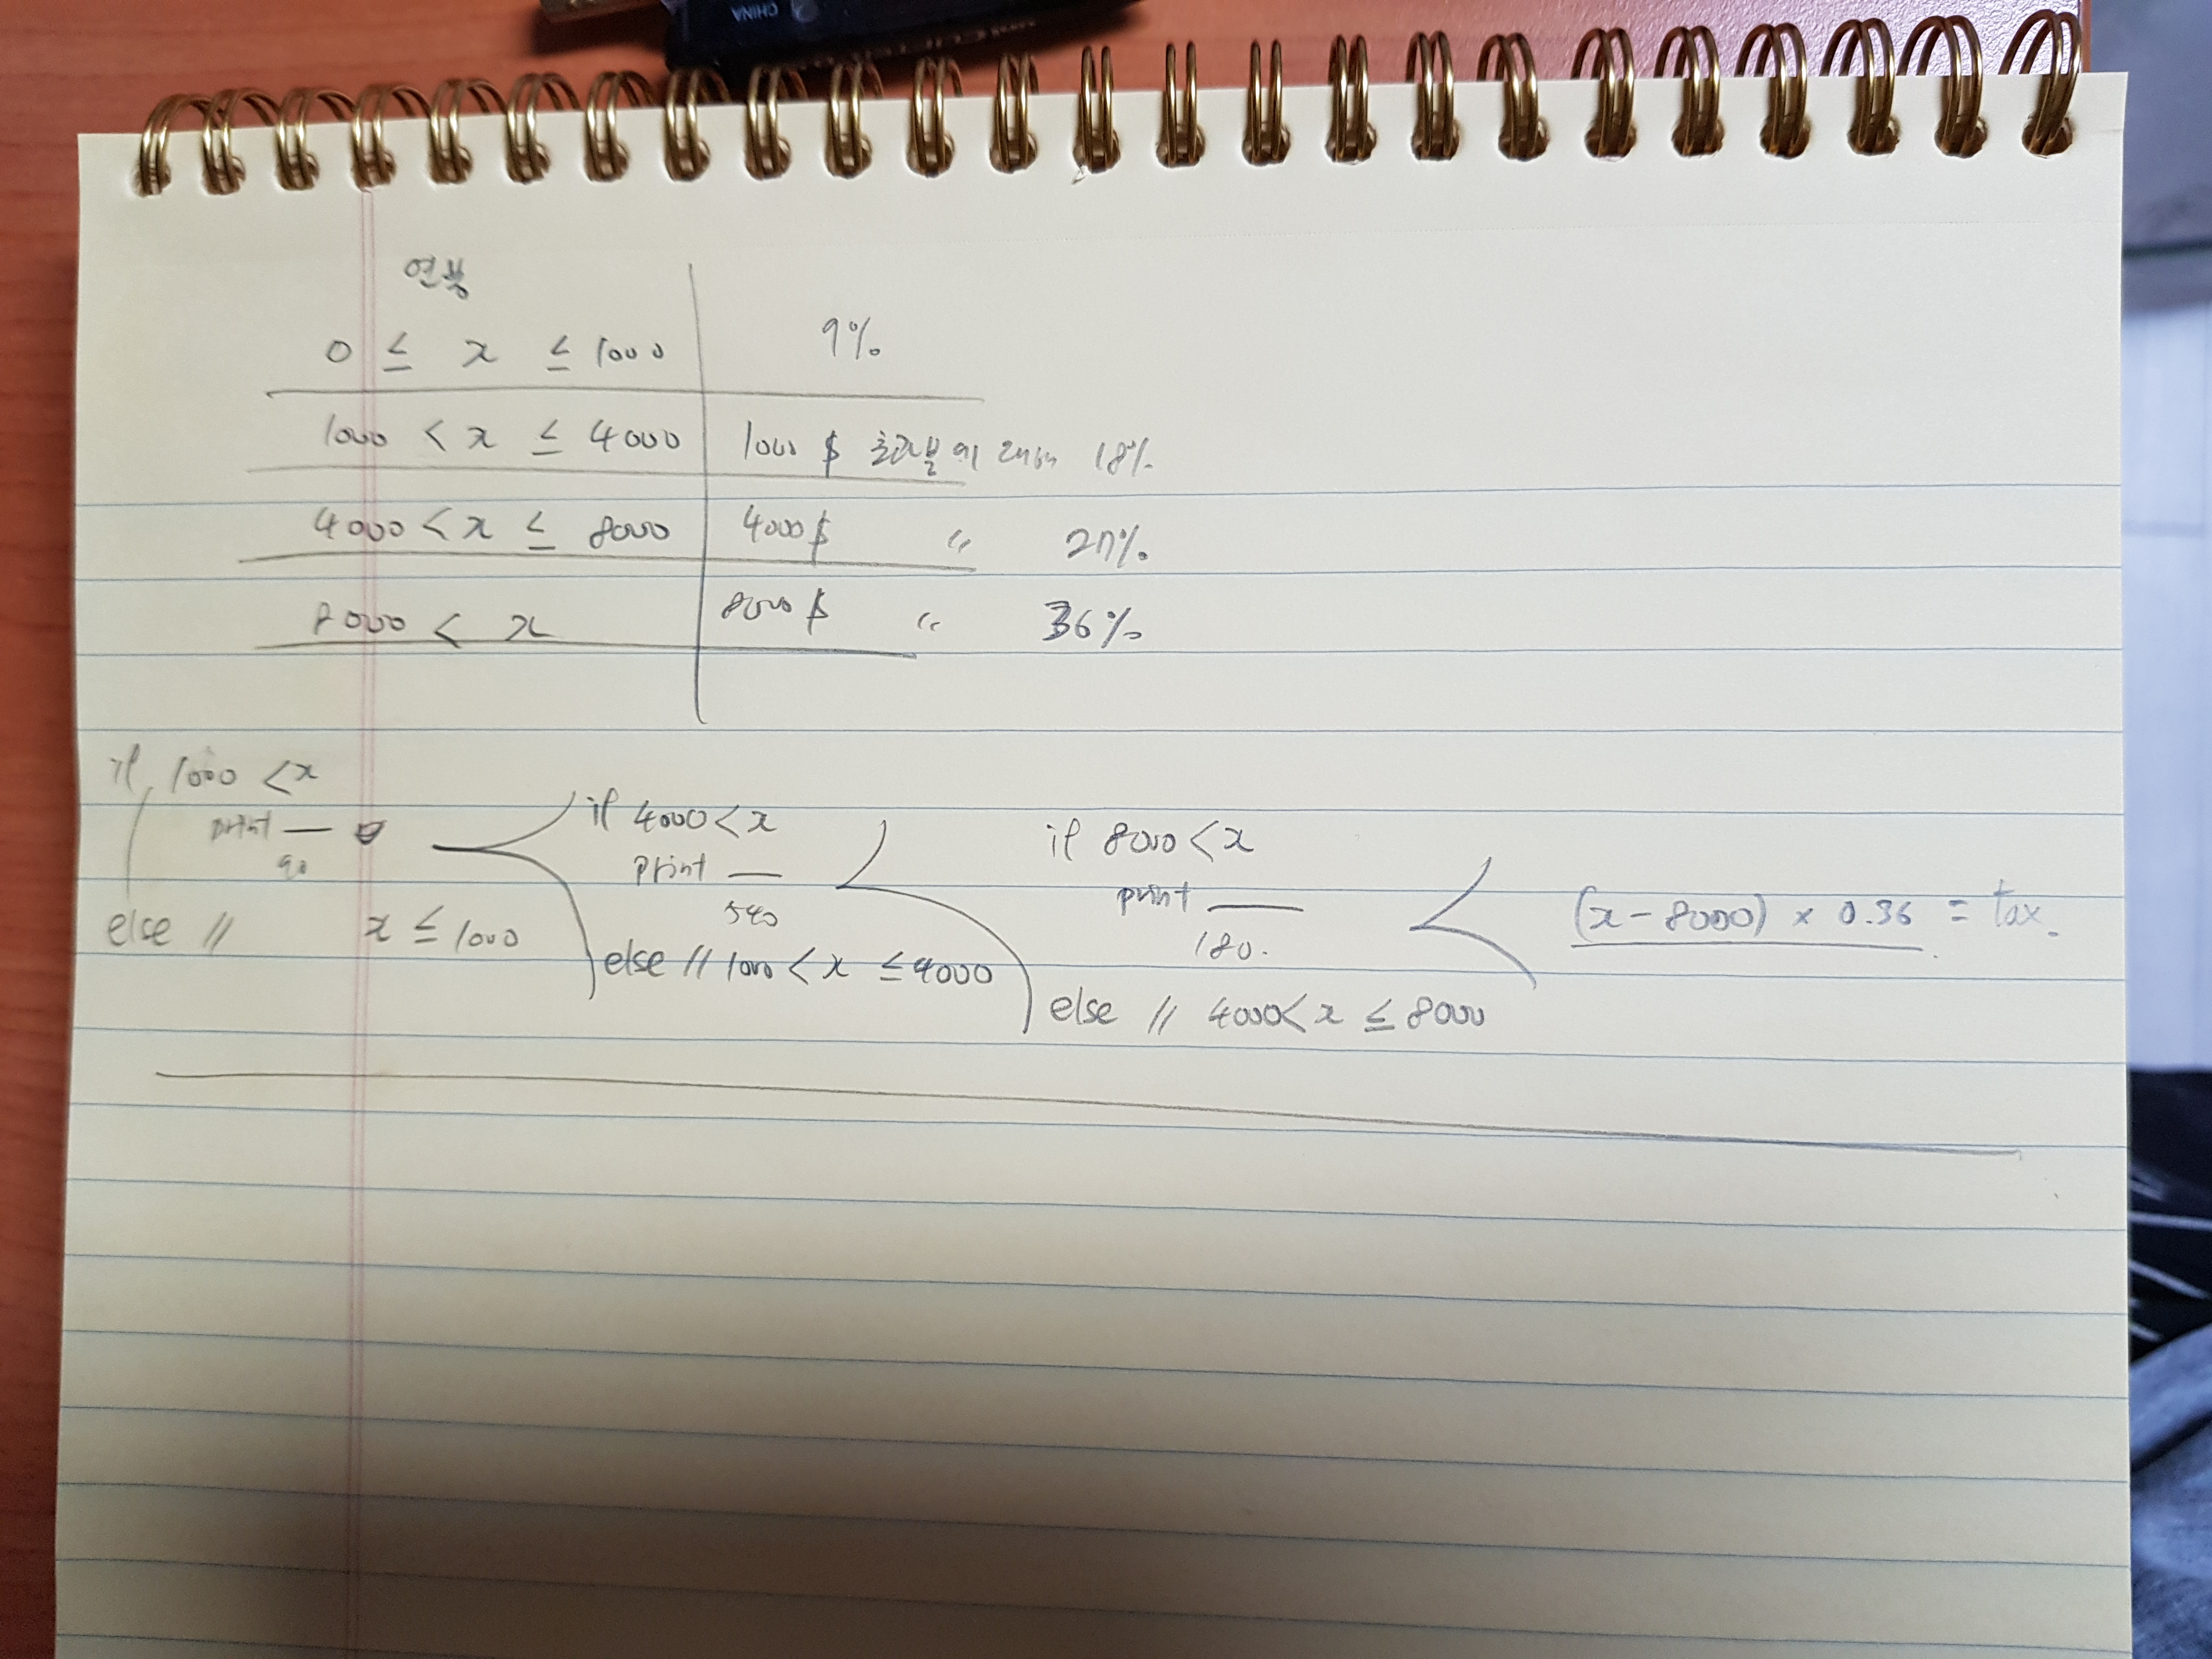 CHINA
연봉
0 ≤ x ≤ 1000 9%
1000 < x ≤ 4000 1000 $ 초과분에 대해 18%
4000 < x ≤ 8000 4000 $ 〃 27%
8000 < x 8000 $ 〃 36%
if 1000 < x
print —
90
else // x ≤ 1000
if 4000 < x
print —
540
else // 1000 < x ≤ 4000
if 8000 < x
print —
180.
else // 4000 < x ≤ 8000
(x - 8000) × 0.36 = tax.